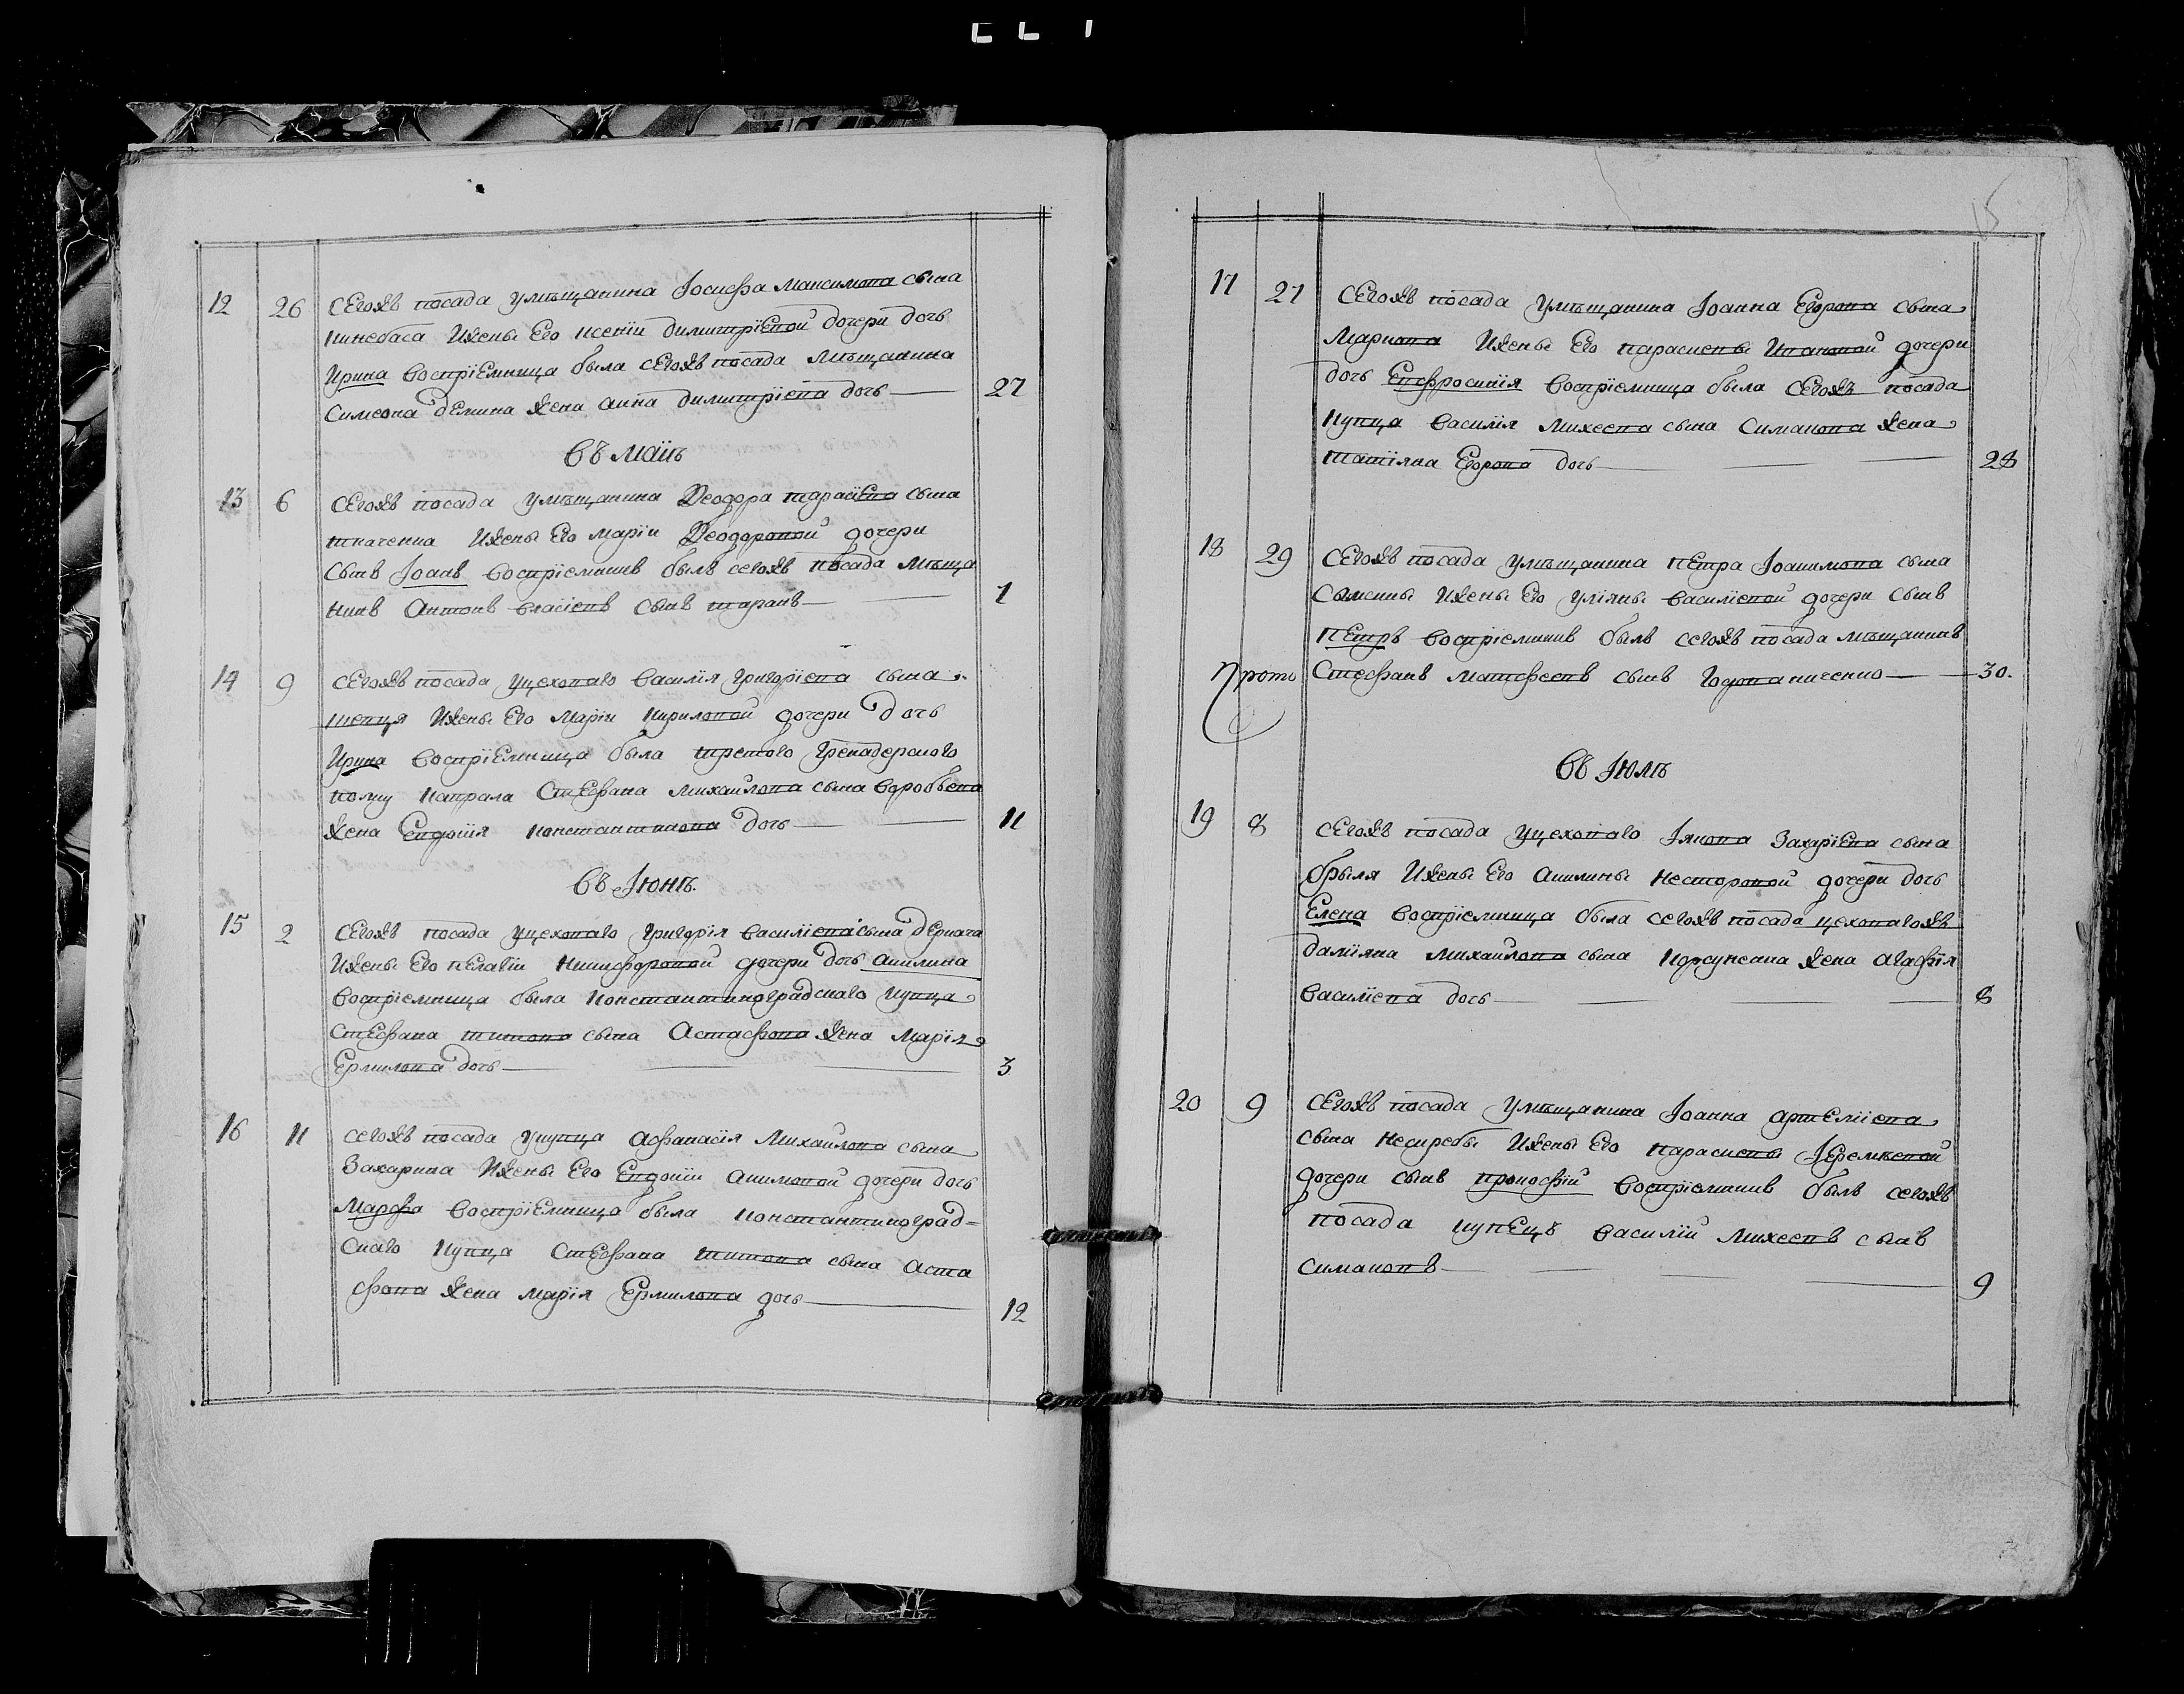 12 26 Сегожъ посада умѣщанина Іосифа Максимова сына
Кинебаса Ижены Его Ксеніи Димитріевой дочери дочь
Ирина Воспріемница была Сегожъ посада Мѣщанина
Симеона Демина жена Анна Димитріева дочь 27
Въ Маиѣ
13 6 Сегожъ посада умѣщанина Ѳеодора Тарасіева сына
Ткаченка Ижены Его Маріи Ѳеодоровой дочери
Сынъ Іоанъ Воспріемникъ былъ сегожъ посада Мѣща
нинъ Антонъ Власіевъ сынъ Таранъ 1
14 9 Сегожъ посада уцеховаго Василія Григоріева сына
Шевця Ижены Его Маріи Кириловой дочери дочь
Ирина Воспріемница была третого Гренадерского
полку Капрала Стефана Михайлова сына Воробьева
жена Евдокія Константинова дочь 11
Въ Іюнѣ.
15 2 Сегожъ посада уцеховаго Григорія Василіева сына Деркача
Ижены Его Пелагіи Никифоровой дочери дочь Акилина
Воспріемница была Константиноградскаго Купца
Стефана Титова сына Астафова жена Марія
Ермилова дочь 3
16 11 Сегожъ посада укупца Афанасія Михайлова сына
Захарина Ижены Его Евдокіи Акимовой дочери дочь
Марфа Воспріемница была Константиноград=
Скаго Купца Стефана Титова сына Аста
фова жена Марія Ермилова дочь 12
15
17 27 Сегожъ посада Умѣщанина Іоанна Егорова сына
Маркова Ижены Его Параскевы Ивановой дочери
дочь Евфросинія Воспріемница была Сегожъ посада
Купца Василія Михеева сына Симакова жена
Татіяна Егорова дочь 28
18 29 Сегожъ посада умѣщанина Петра Іоакимова сына
Ижены Его Уліяны Василіевой дочери сынъ
Петръ Воспріемникъ былъ сегожъ посада мѣщанинъ
Стефанъ Матфеевъ сынъ 30.
Въ Іюлѣ
19 8 Сегожъ посада уцеховаго Іякова Захаріева сына
брыля Ижены Его Акилины Несторовой дочери дочь
Елена Воспріемница была сегожъ посада цеховагожъ
Даміяна Михайлова сына Корсунсана жена Агафія
Василіева дочь 8
20 9 Сегожъ посада Умѣщанина Іоанна Артеміева
сына Нескребы Ижены Его Параскевы Іеремѣевой
дочери сынъ Прокофій Воспріемникъ былъ сегожъ
посада купецъ Василій Михеевъ сынъ
Симаковъ 9